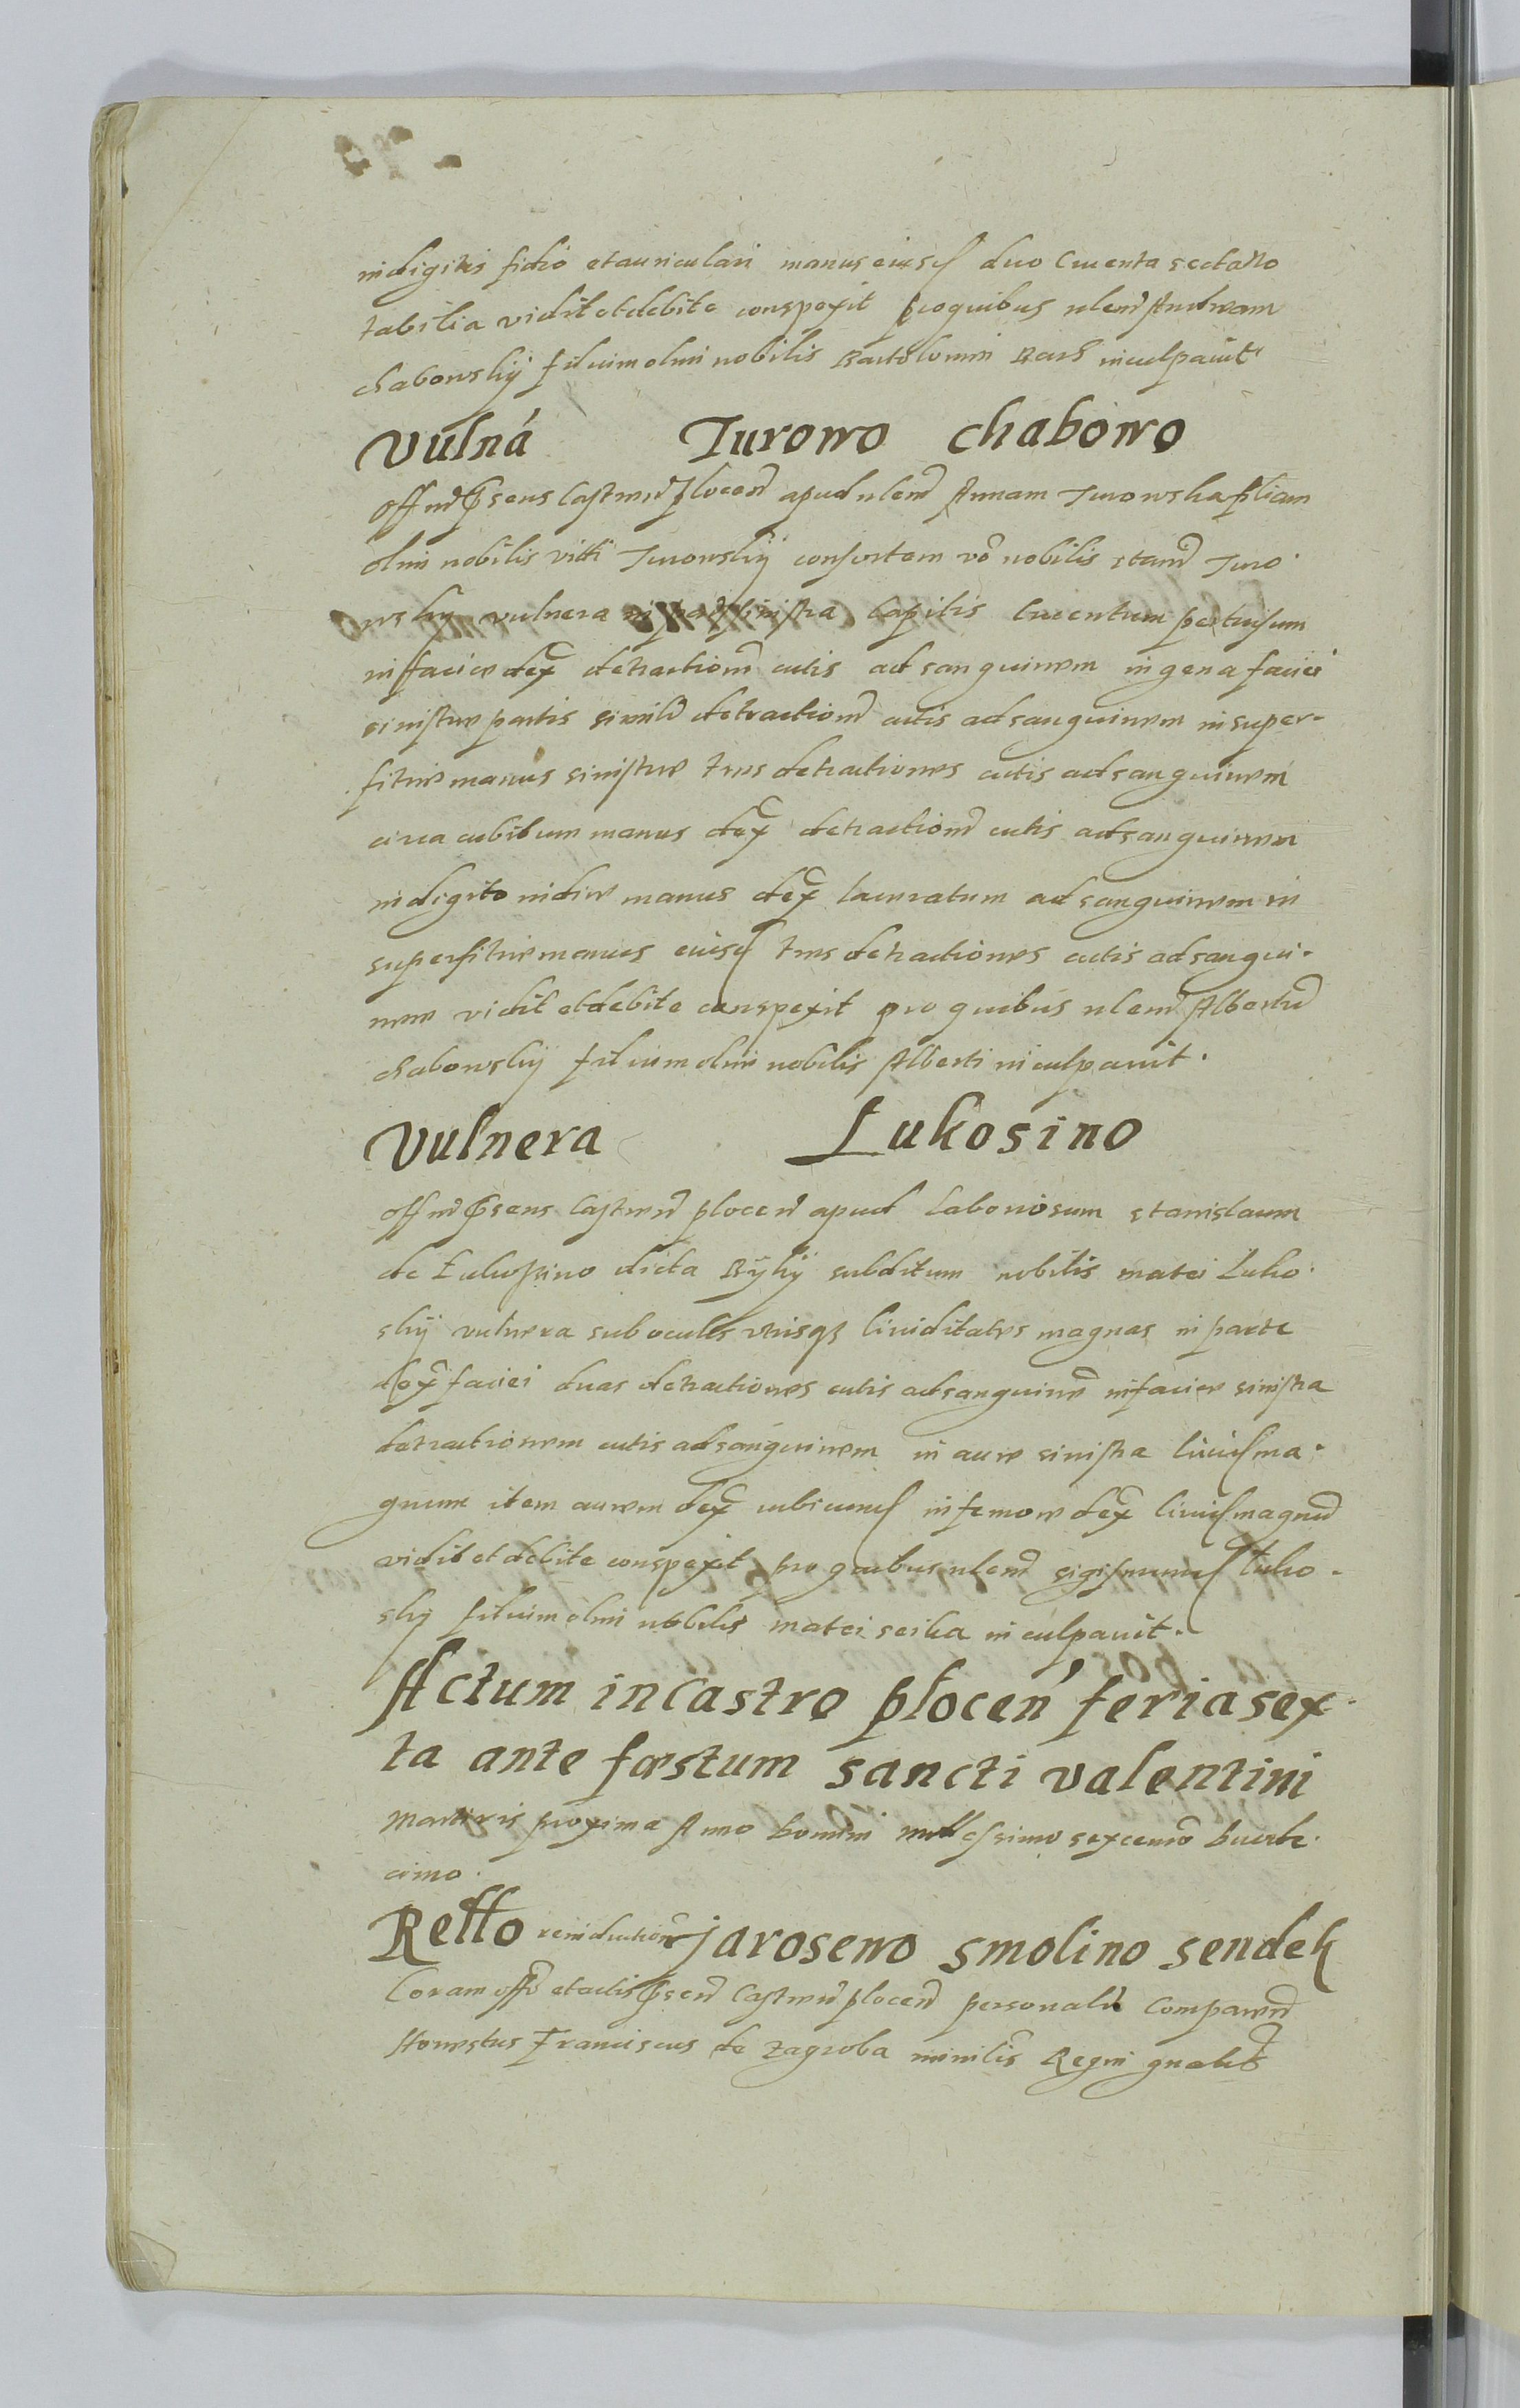 in digitis fidio et auriculari manus eiusd duo cruenta secta no
tabilia vidit et debite conspexit pro quibus nlem Andream
chabowskij filium olim nobilis Bartolomei inculpavit
Vulná Turowo chabowo
Offm psens Castren plocen apud nlem Annam Turowska filiam
olim nobilis viti Turowskij consortem vo nobilis stani Turo
wskij vulnera in sinistra Capitis Cruentum pertusum
in facie dex detractionem cutis ad sanguinem in gena faciei
sinistre partis simile detractionem cutis ad sanguinem in super-
fitie manus sinistre tres detractiones cutis ad sanguinem
circa cubitum manus dex detractionem cutis ad sanguinem
in digito manus dex laceratum ad sanguinem in
superfitie manus eiusd tres detractiones cutis ad sangui-
nem vidit et debite conspexit pro quibus nlem Albertu
chabowskij filium olim nobilis Alberti inculpavit.
Vulnera Łukosino
Offm psens Castren plocen apud Laboriosum stanislaum
de Łukosino dicta Rÿkÿ subditum nobilis matei Luko
skÿ vulnera sub oculis utrisque lividitates magnas in parte
dex faciei duas detractiones cutis ad sanguine in facie sinistra
detractionem cutis ad sanguinem in aure sinistra livid ma-
gnum item aurem dex in femore dex livid magnu
vidit et debite conspexit pro quibus nlem sigismund Łuko-
skij filium olim nobilis matei seika inculpavit.
Actum in Castro płocen feria sex-
ta ante festum sancti valentini
Martiris proxima Anno Domini millesimo sexcento duode
cimo.
Retto jarosewo smolino sendek
Coram offo et actis psen Castren plocen personalr Comparen
Honestus Franciscus de Zagroba minilis Regni gnalis